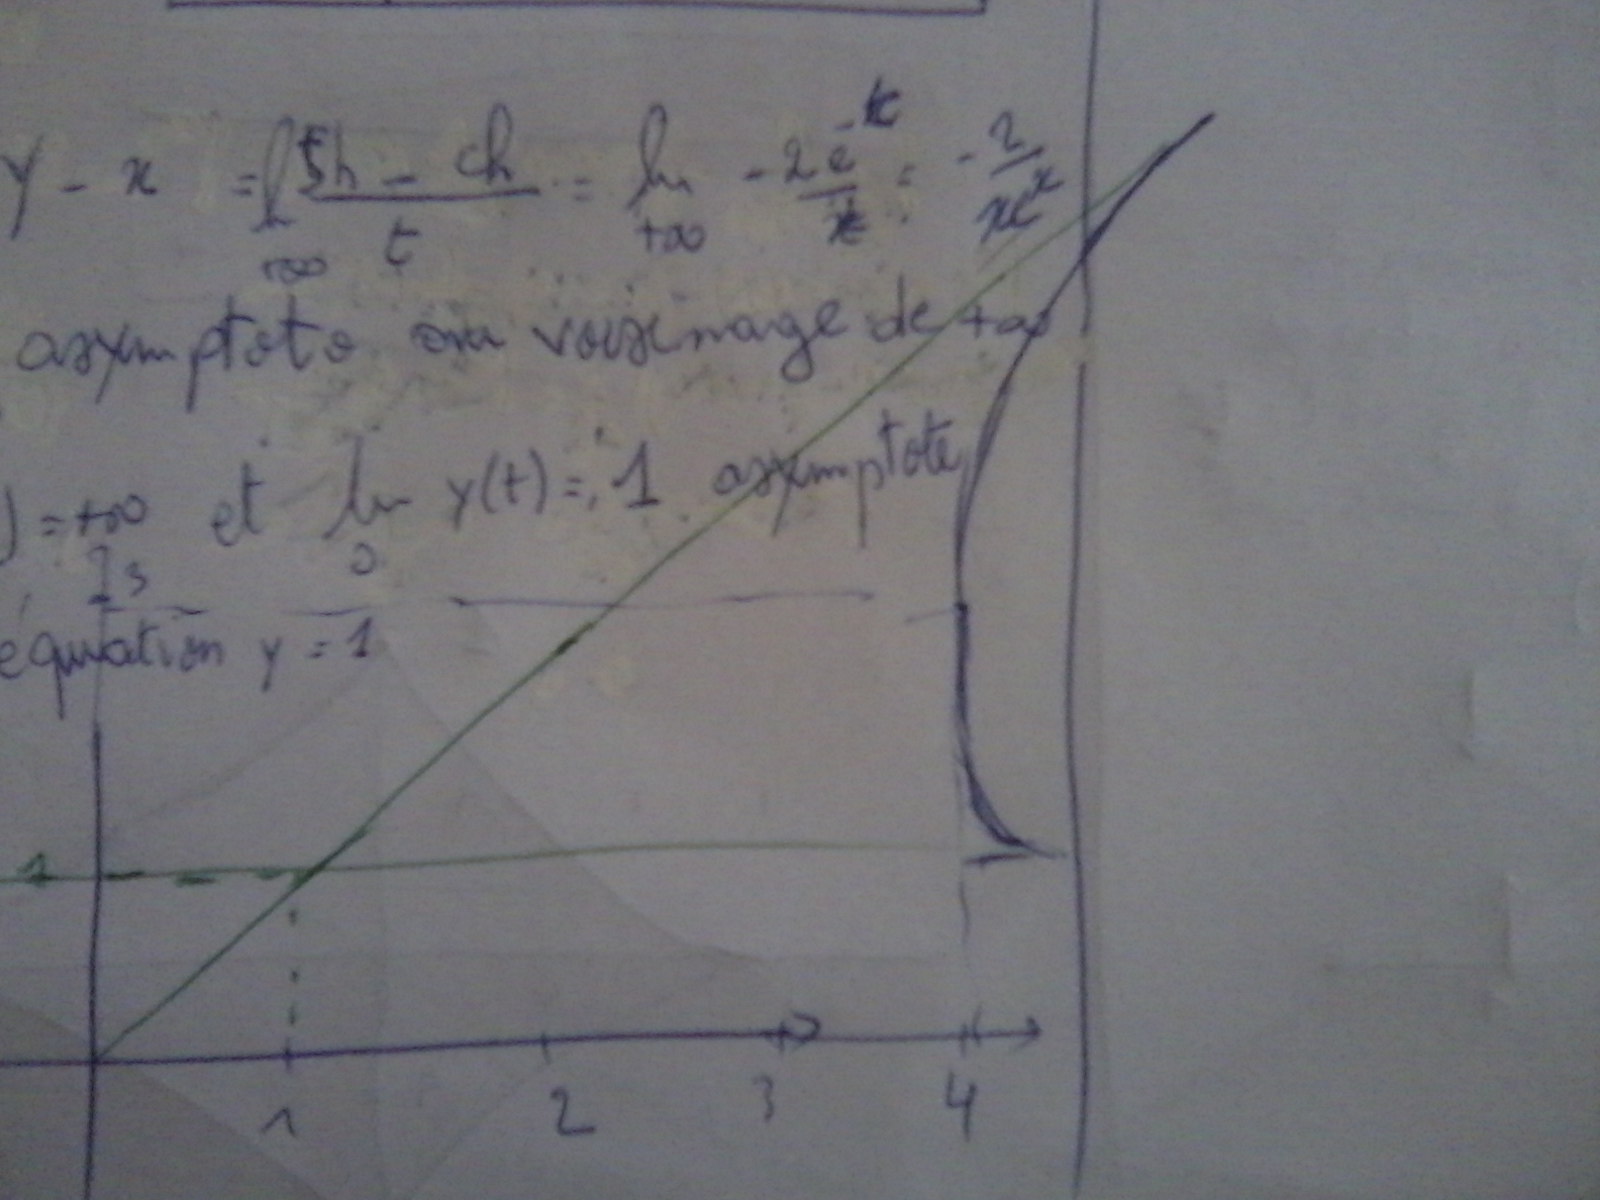 y - x = lim sh - ch / t = lim - 2e^-t / t = - 2 / xe^x
+∞ +∞
asymptote au voisinage de +∞
) = +∞ et lim y(t) = 1 asymptote
0
3
équation y = 1
1
1 2 3 4